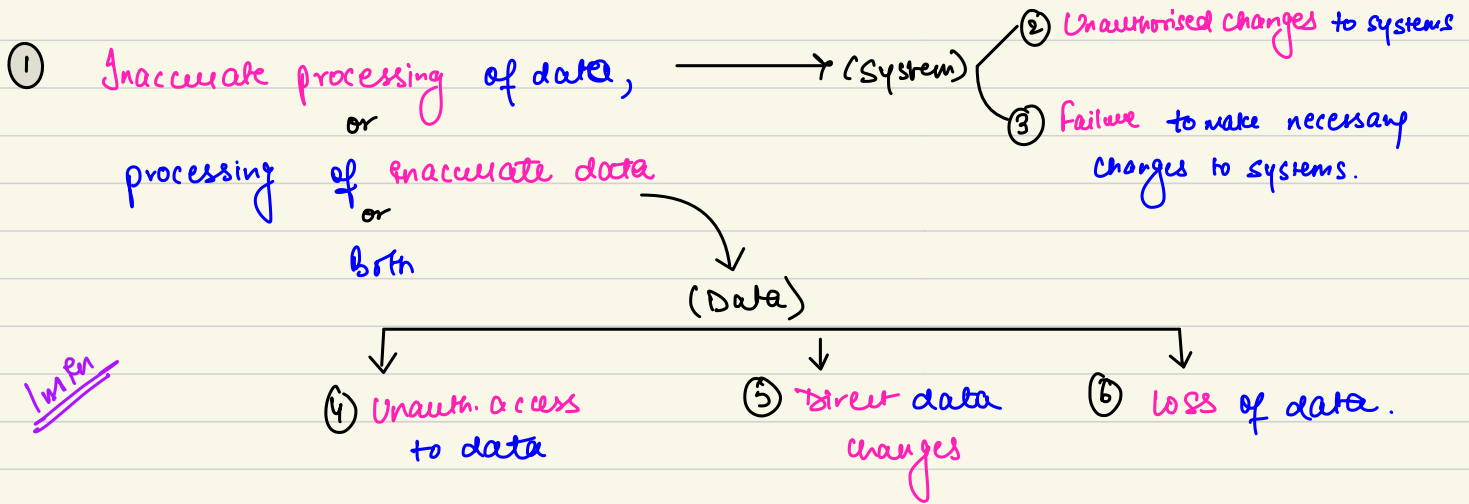 ① Inaccurate processing of data, → (System)
② Unauthorised changes to systems
③ Failure to make necessary
changes to systems.
or
processing of inaccurate data
or
Both
(Data)
④ Unauth. access
to data
⑤ Direct data
changes
⑥ Loss of data.